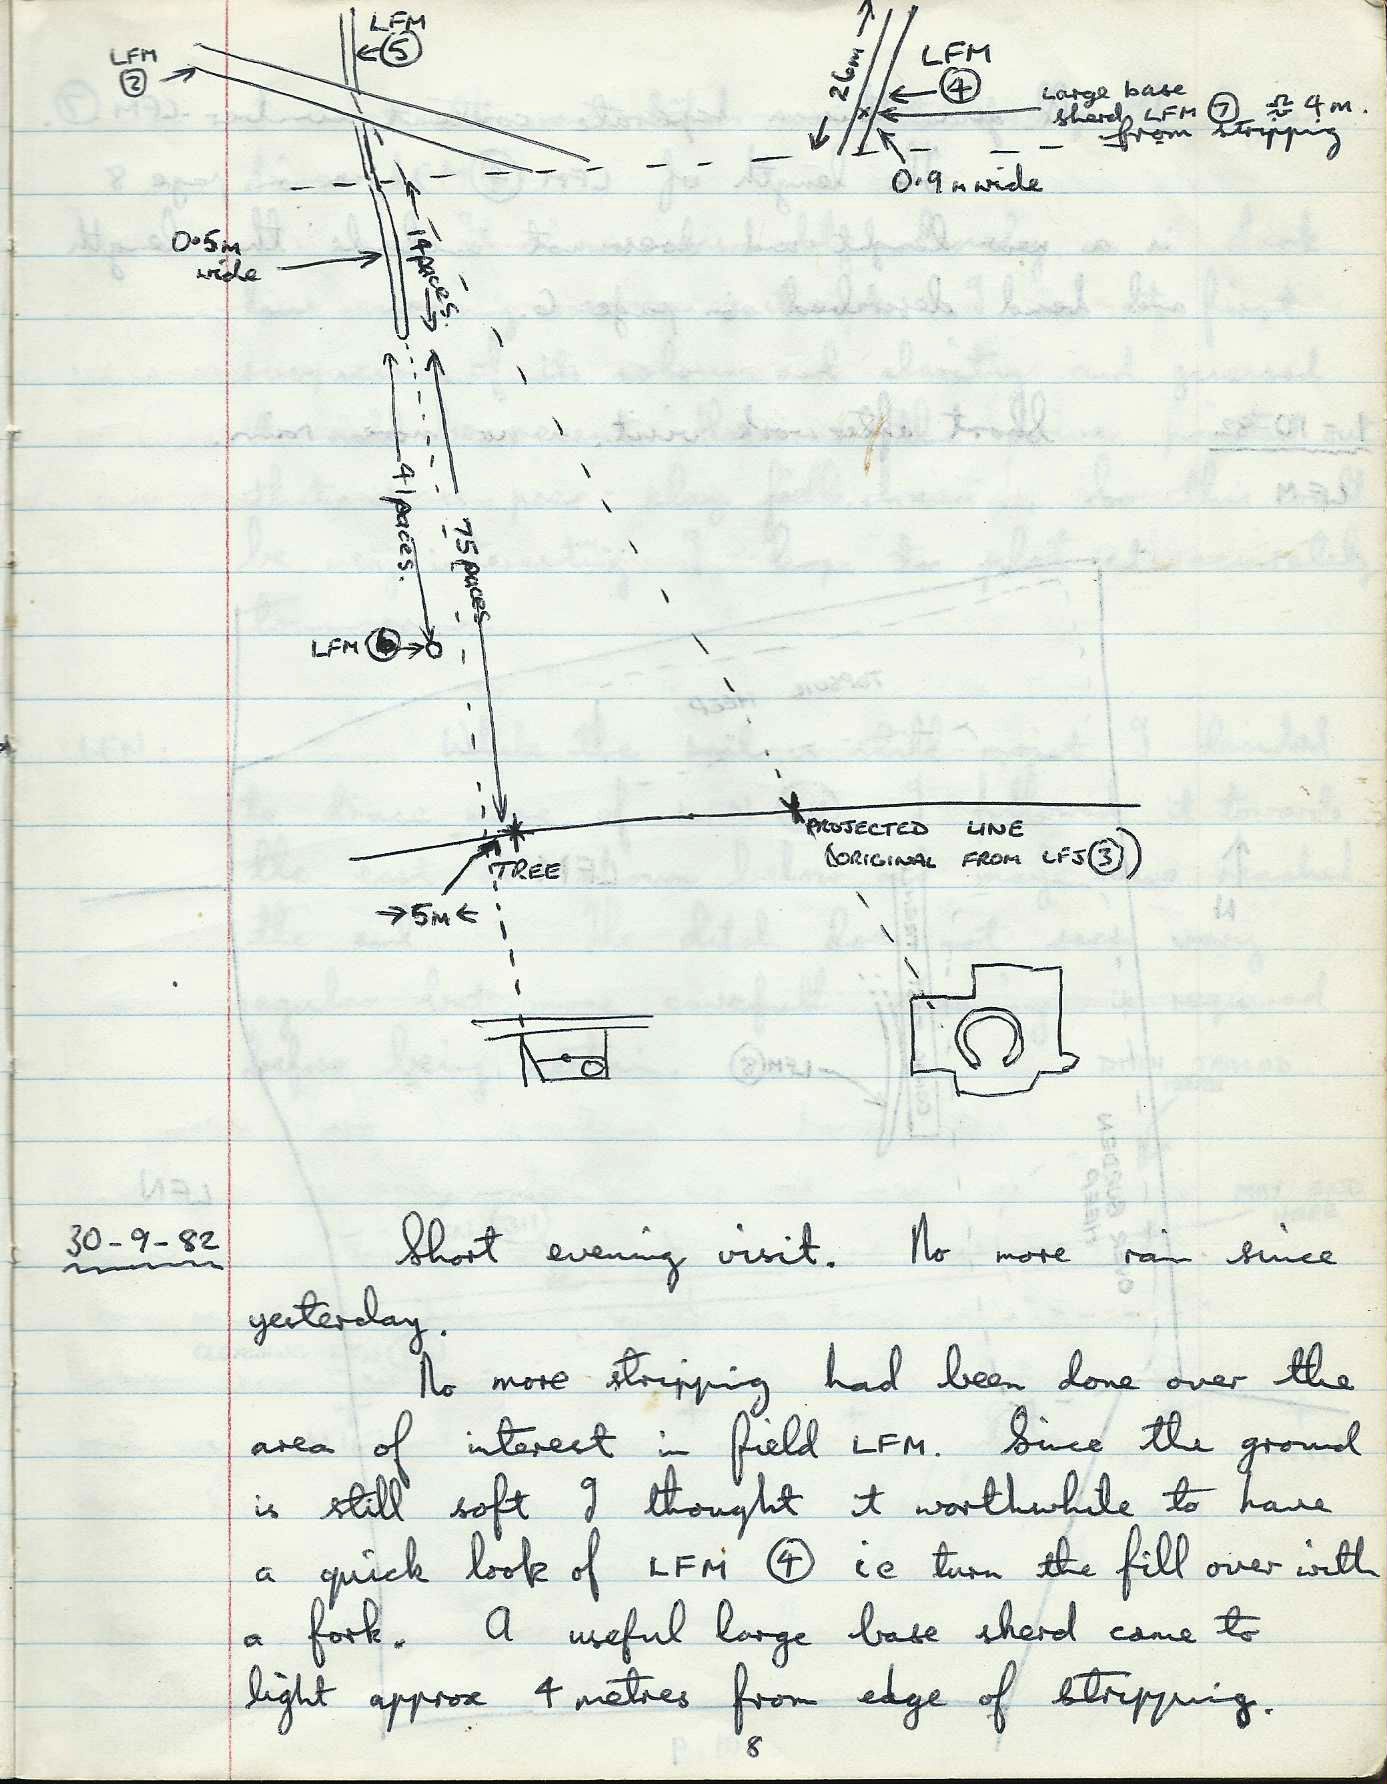 LFM
⑤
LFM
②
26m
LFM
④
Large base
sherd LFM ⑦ ≈ 4m.
from stripping
0.9m wide
0.5m
wide
14 paces.
41 paces.
75 paces
LFM ⑥
TREE
5M
PROJECTED LINE
(ORIGINAL FROM LFJ ③)
30-9-82
Short evening visit. No more rain since
yesterday.
No more stripping had been done over the
area of interest in field LFM. Since the ground
is still soft I thought it worthwhile to have
a quick look of LFM ④ ie turn the fill over with
a fork. A useful large base sherd came to
light approx 4 metres from edge of stripping.
8